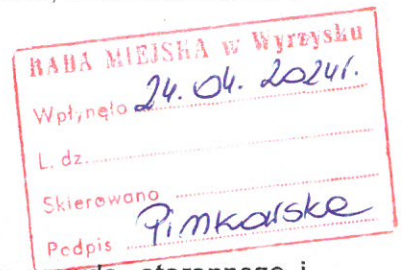 RADA MIEJSKA w Wyrzysku
Wpłynęło 24.04.2024r.
L. dz.
Skierowano
Podpis Pimkowska
starannego i